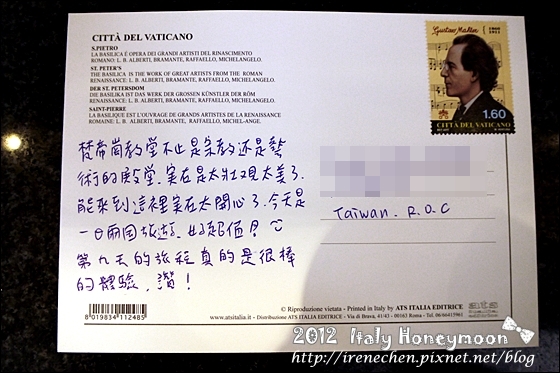 CITTÀ DEL VATICANO
S.PIETRO
LA BASILICA È OPERA DEI GRANDI ARTISTI DEL RINASCIMENTO
ROMANO: L. B. ALBERTI, BRAMANTE, RAFFAELLO, MICHELANGELO.
ST. PETER'S
THE BASILICA IS THE WORK OF GREAT ARTISTS FROM THE ROMAN
RENAISSANCE: L. B. ALBERTI, BRAMANTE, RAFFAELLO, MICHELANGELO.
DER ST. PETERSDOM
DIE BASILIKA IST DAS WERK DER GROSSEN KÜNSTLER DER RÖM
RENAISSANCE: L. B. ALBERTI, BRAMANTE, RAFFAELLO, MICHELANGELO.
SAINT-PIERRE
LA BASILIQUE EST L'OUVRAGE DE GRANDS ARTISTES DE LA RENAISSANCE
ROMAINE: L. B. ALBERTI, BRAMANTE, RAFFAELLO, MICHEL-ANGE.
Gustav Mahler
1860
1911
1.60
CITTÀ DEL VATICANO
梵帝崗教堂不止是宗教還是藝
術的殿堂,實在是太壯觀太美了.
能來到這裡實在太開心了.今天是
一日兩國旅遊,超值!
第九天的旅程真的是很棒
的體驗,讚!
Taiwan. R.O.C
8 019834 112485
© Riproduzione vietata - Printed in Italy by ATS ITALIA EDITRICE
www.atsitalia.it - Distribuzione ATS ITALIA EDITRICE - Via di Brava, 41/43 - 00163 Roma - Tel. 06/66415961
ats
2012 Italy Honeymoon
http://irenechen.pixnet.net/blog